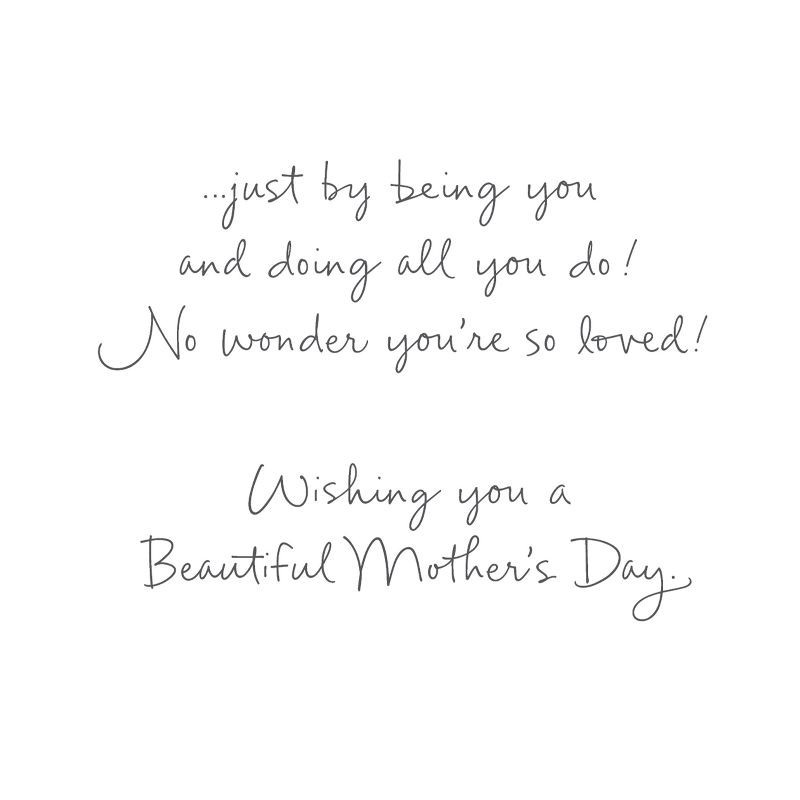 ...just by being you
and doing all you do!
No wonder you're so loved!
Wishing you a
Beautiful Mother's Day.